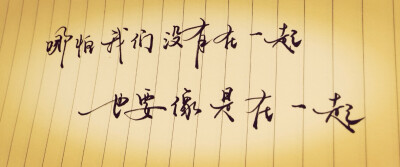 哪怕我们没有在一起
也要像是在一起